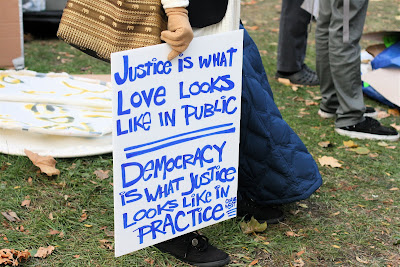 JUSTICE IS WHAT
LOVE LOOKS
LIKE IN PUBLIC
DEMOCRACY
IS WHAT JUSTICE
LOOKS LIKE IN
PRACTICE